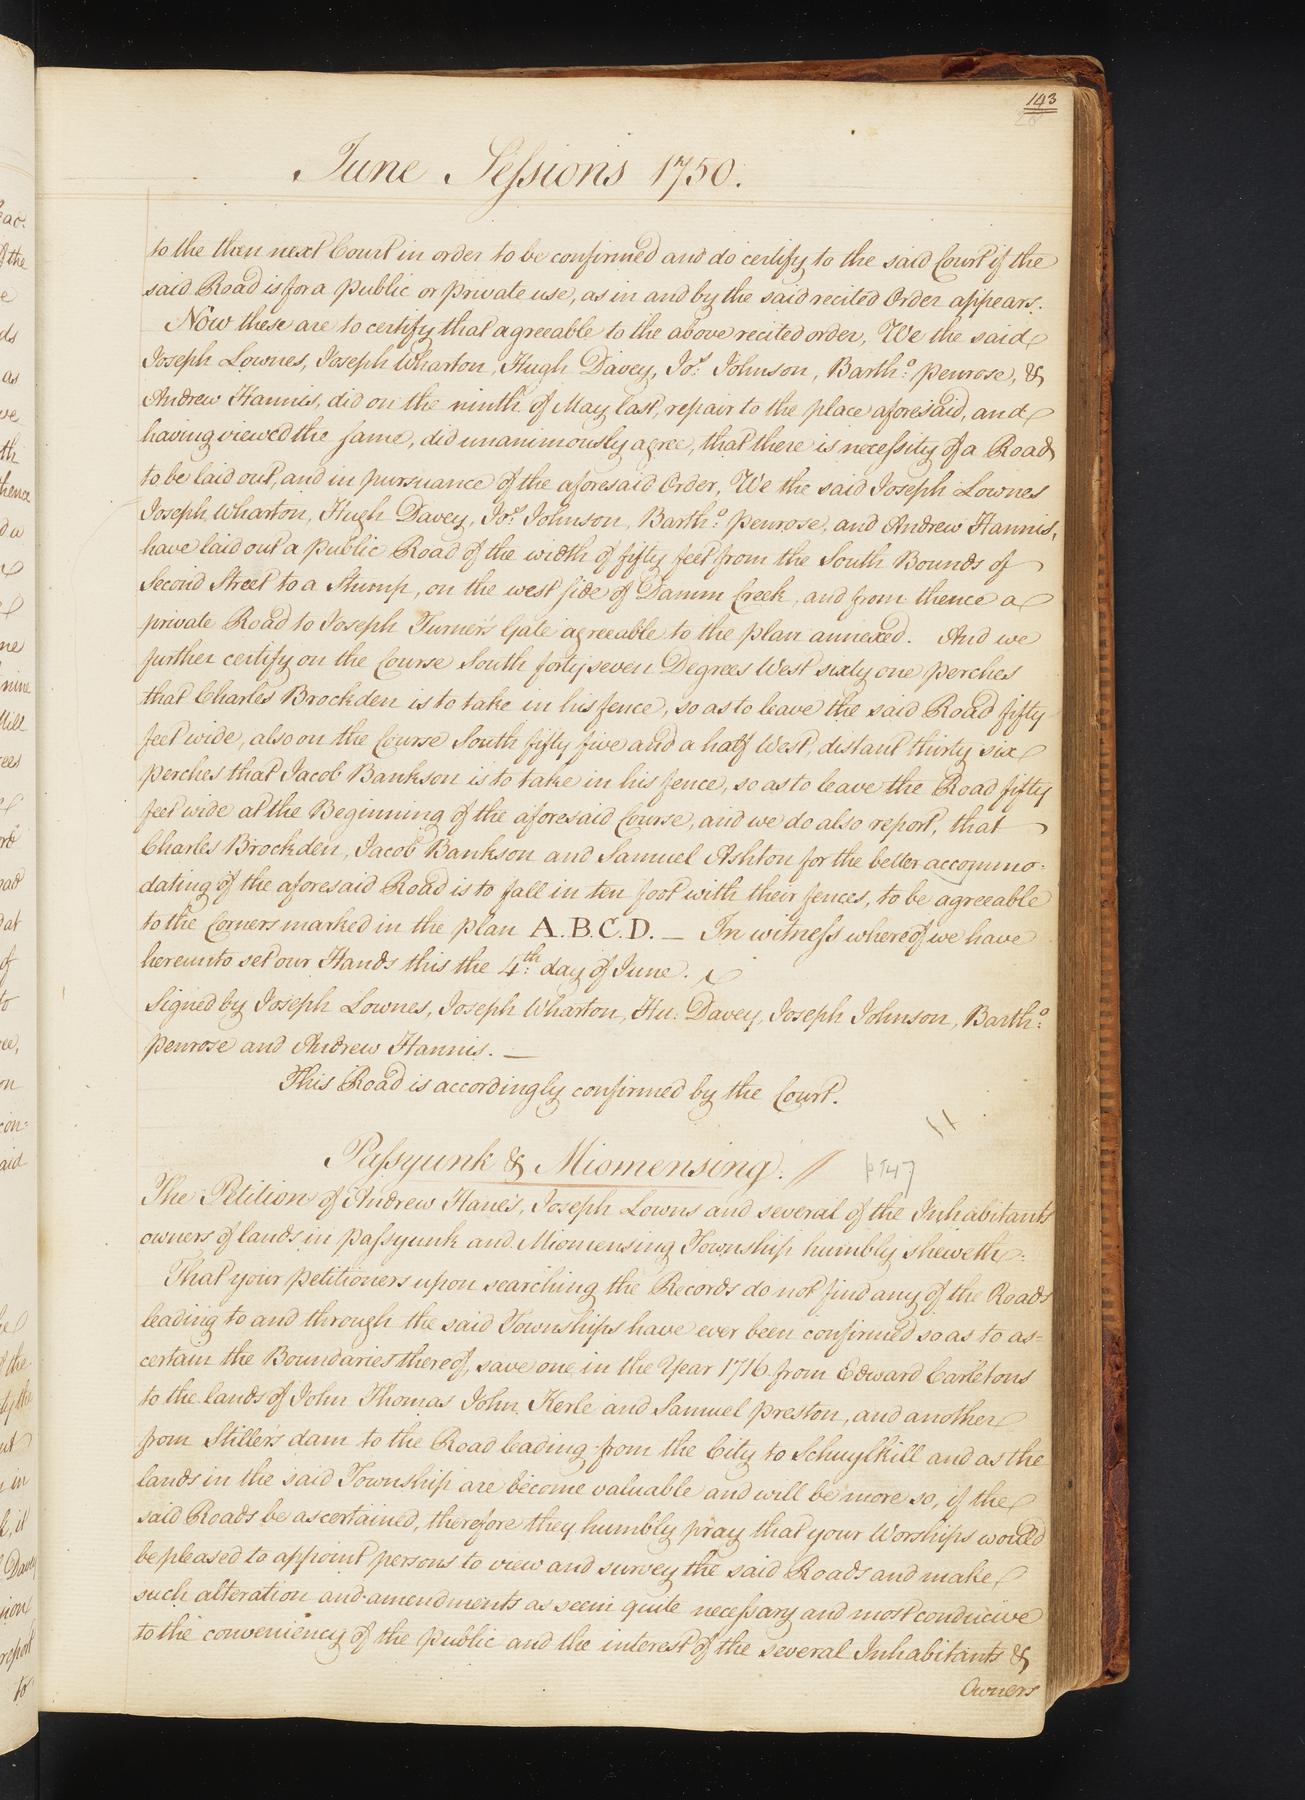 143
June Sessions 1750.
to the then next Court in order to be confirmed and do certify to the said Court if the
said Road is for a public or private use, as in and by the said recited Order appears.
Now these are to certify that agreeable to the above recited order, We the said
Joseph Lownes, Joseph Wharton, Hugh Davey, Jos. Johnson, Bartho. Penrose, &
Andrew Hannis, did on the ninth of May last, repair to the place aforesaid, and
having viewed the same, did unanimously agree, that there is necessity of a Road
to be laid out, and in pursuance of the aforesaid Order, We the said Joseph Lownes
Joseph Wharton, Hugh Davey, Jos. Johnson, Bartho. Penrose, and Andrew Hannis,
have laid out a public Road of the width of fifty feet from the South Bounds of
Second Street to a Stump, on the west side of Damm Creek, and from thence a
private Road to Joseph Turner's Gate agreeable to the plan annexed. And we
further certify on the Course South forty seven Degrees West sixty one perches
that Charles Brockden is to take in his fence, so as to leave the said Road fifty
feet wide, also on the Course South fifty five and a half West, distant thirty six
perches that Jacob Bankson is to take in his fence, so as to leave the Road fifty
feet wide at the Beginning of the aforesaid Course, and we do also report, that
Charles Brockden, Jacob Bankson and Samuel Ashton for the better accommo-
dating of the aforesaid Road is to fall in ten foot with their fences, to be agreeable
to the Corners marked in the plan A.B.C.D. — In witness whereof we have
hereunto set our Hands this the 4th. day of June.
Signed by Joseph Lownes, Joseph Wharton, Hu: Davey, Joseph Johnson, Bartho.
Penrose and Andrew Hannis. —
This Road is accordingly confirmed by the Court.
Passyunk & Miomensing. //
p 147
The Petition of Andrew Hanes, Joseph Lowns and several of the Inhabitants
owners of lands in passyunk and Miomensing Township humbly sheweth:
That your petitioners upon searching the Records do not find any of the Roads
leading to and through the said Townships have ever been confirmed so as to as-
certain the Boundaries thereof, save one in the Year 1716 from Edward Carletons
to the lands of John Thomas John Kerle and Samuel Preston, and another
from Stillers dam to the Road leading from the City to Schuylkill and as the
lands in the said Township are become valuable and will be more so, if the
said Roads be ascertained, therefore they humbly pray that your Worships would
be pleased to appoint persons to view and survey the said Roads and make
such alteration and amendments as seem quite necessary and most conducive
to the conveniency of the public and the interest of the several Inhabitants &
Owners